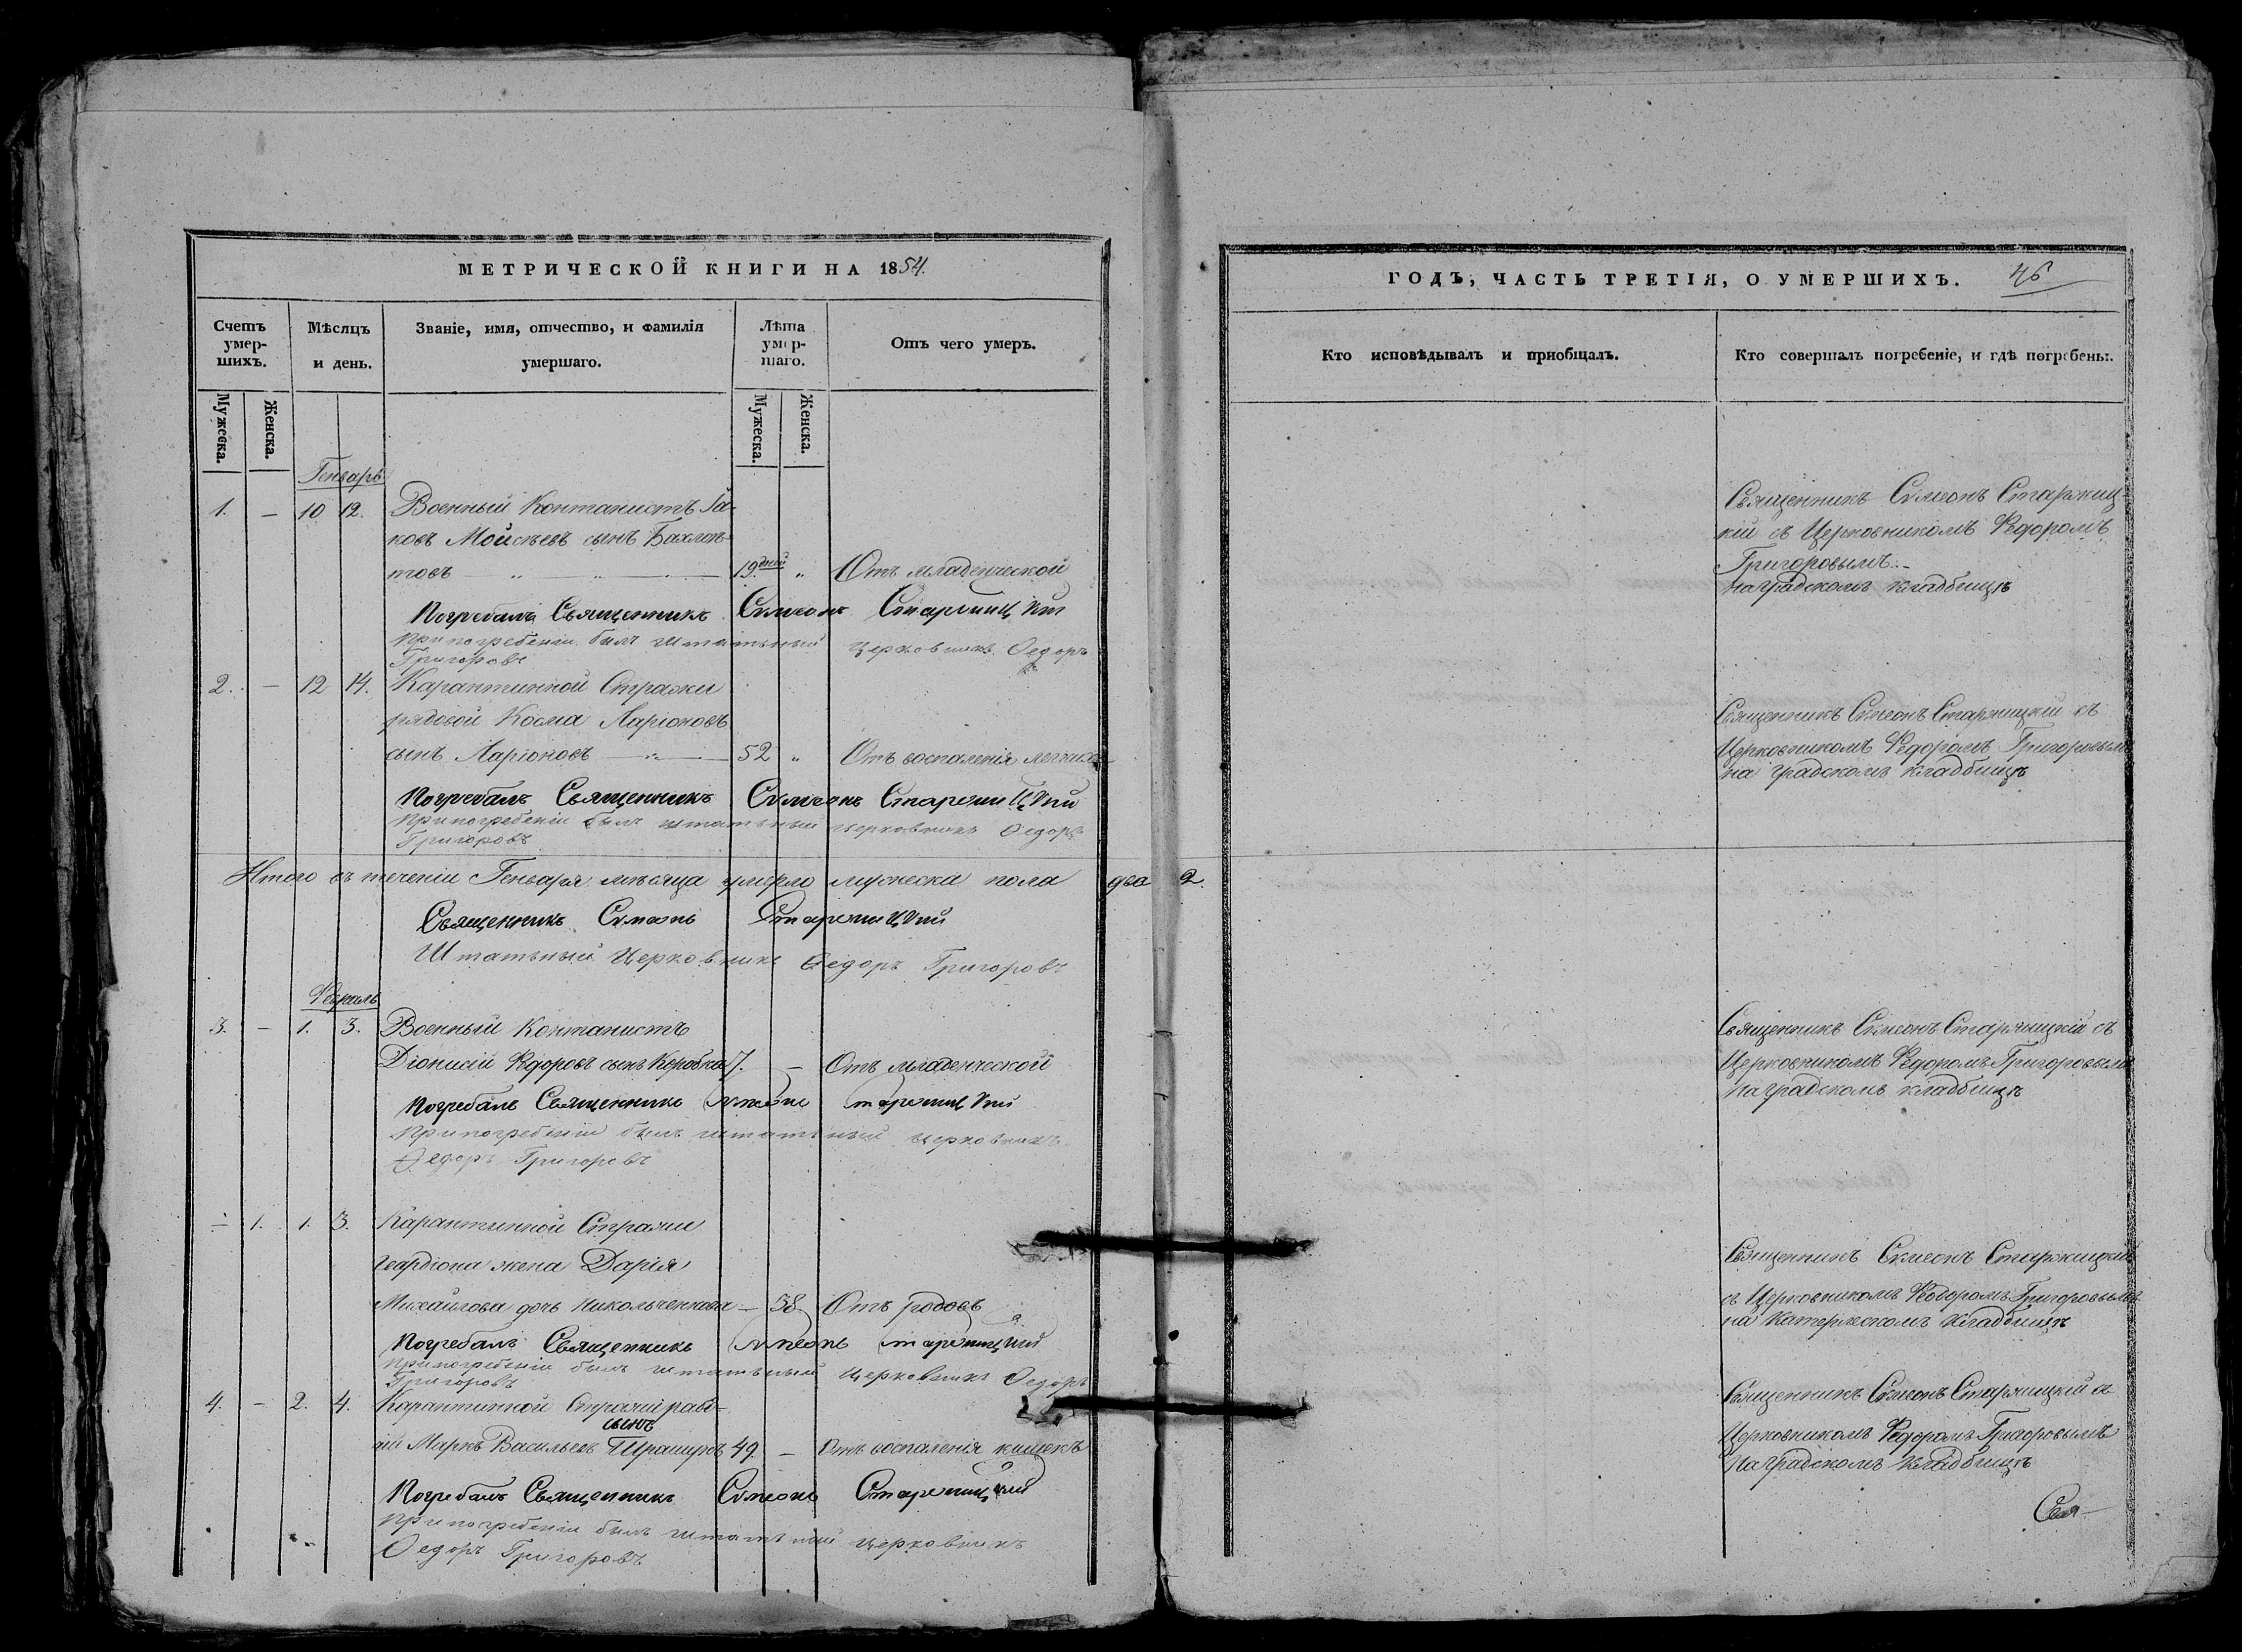 МЕТРИЧЕСКОЙ КНИГИ НА 1854.
Счетъ умер-шихъ.
Мѣсяцъ и день.
Званіе, имя, отчество, и фамилія умершаго.
Лѣта умер-шаго.
Отъ чего умеръ.
Мужеска.
Женска.
Мужеска.
Женска.
Генварь
1. — 10 12. Военный Кантанистъ Іа-
ковъ Мойсѣевъ сынъ
товъ — 19. дней „ Отъ младенческой
Погребалъ Священникъ Сѵмеонъ Старжицкій
При погребеніи былъ штатный церковникъ Ѳедоръ
Григоровъ
2. — 12 14. Карантинной Стражи
рядовой Косма Ларіоновъ
сынъ Ларіоновъ — 52 „ Отъ воспаленія легкихъ
Погребалъ Священникъ Сѵмеонъ Старжицкій
При погребеніи былъ штатный церковникъ Ѳедоръ
Григоровъ
Итого въ теченіи Генваря мѣсяца умерло мужеска пола два 2.
Священникъ Сѵмеонъ Старжицкій
Штатный Церковникъ Ѳедоръ Григоровъ
3. — 1. 3. Военный Кантанистъ
Діонисій Ѳедоровъ сынъ Коробка 7. — Отъ младенческой
Погребалъ Священникъ Сѵмеонъ Старжицкій
При погребеніи былъ штатный церковникъ
Ѳедоръ Григоровъ
— 1. 1. 3. Карантинной Стражи
гвардіона жена Дарія
Михайлова дочь — 38. Отъ родовъ
Погребалъ Священникъ Сѵмеонъ Старжицкій
При погребеніи былъ штатный церковникъ Ѳедоръ
Григоровъ
4. — 2. 4. Карантинной Стражи
сынъ
Маркъ Васильевъ 49. — Отъ воспаленія кишекъ
Погребалъ Священникъ Сѵмеонъ Старжицкій
При погребеніи былъ штатный церковникъ
Ѳедоръ Григоровъ
ГОДЪ, ЧАСТЬ ТРЕТІЯ, О УМЕРШИХЪ. 46
Кто исповѣдывалъ и пріобщалъ.
Кто совершалъ погребеніе, и гдѣ погребены.
Священникъ Сѵмеонъ Старжиц-
кій съ Церковникомъ Ѳедоромъ
Григоровымъ.
на градскомъ кладбищѣ
Священникъ Сѵмеонъ Старжицкій съ
Церковникомъ Ѳедоромъ Григоровымъ
на градскомъ кладбищѣ
Священникъ Сѵмеонъ Старжицкій съ
Церковникомъ Ѳедоромъ Григоровымъ
на градскомъ кладбищѣ
Священникъ Сѵмеонъ Старжицкій
съ Церковникомъ Ѳедоромъ Григоровымъ
на кладбищѣ
Священникъ Сѵмеонъ Старжицкій съ
Церковникомъ Ѳедоромъ Григоровымъ
на градскомъ кладбищѣ
Свя-